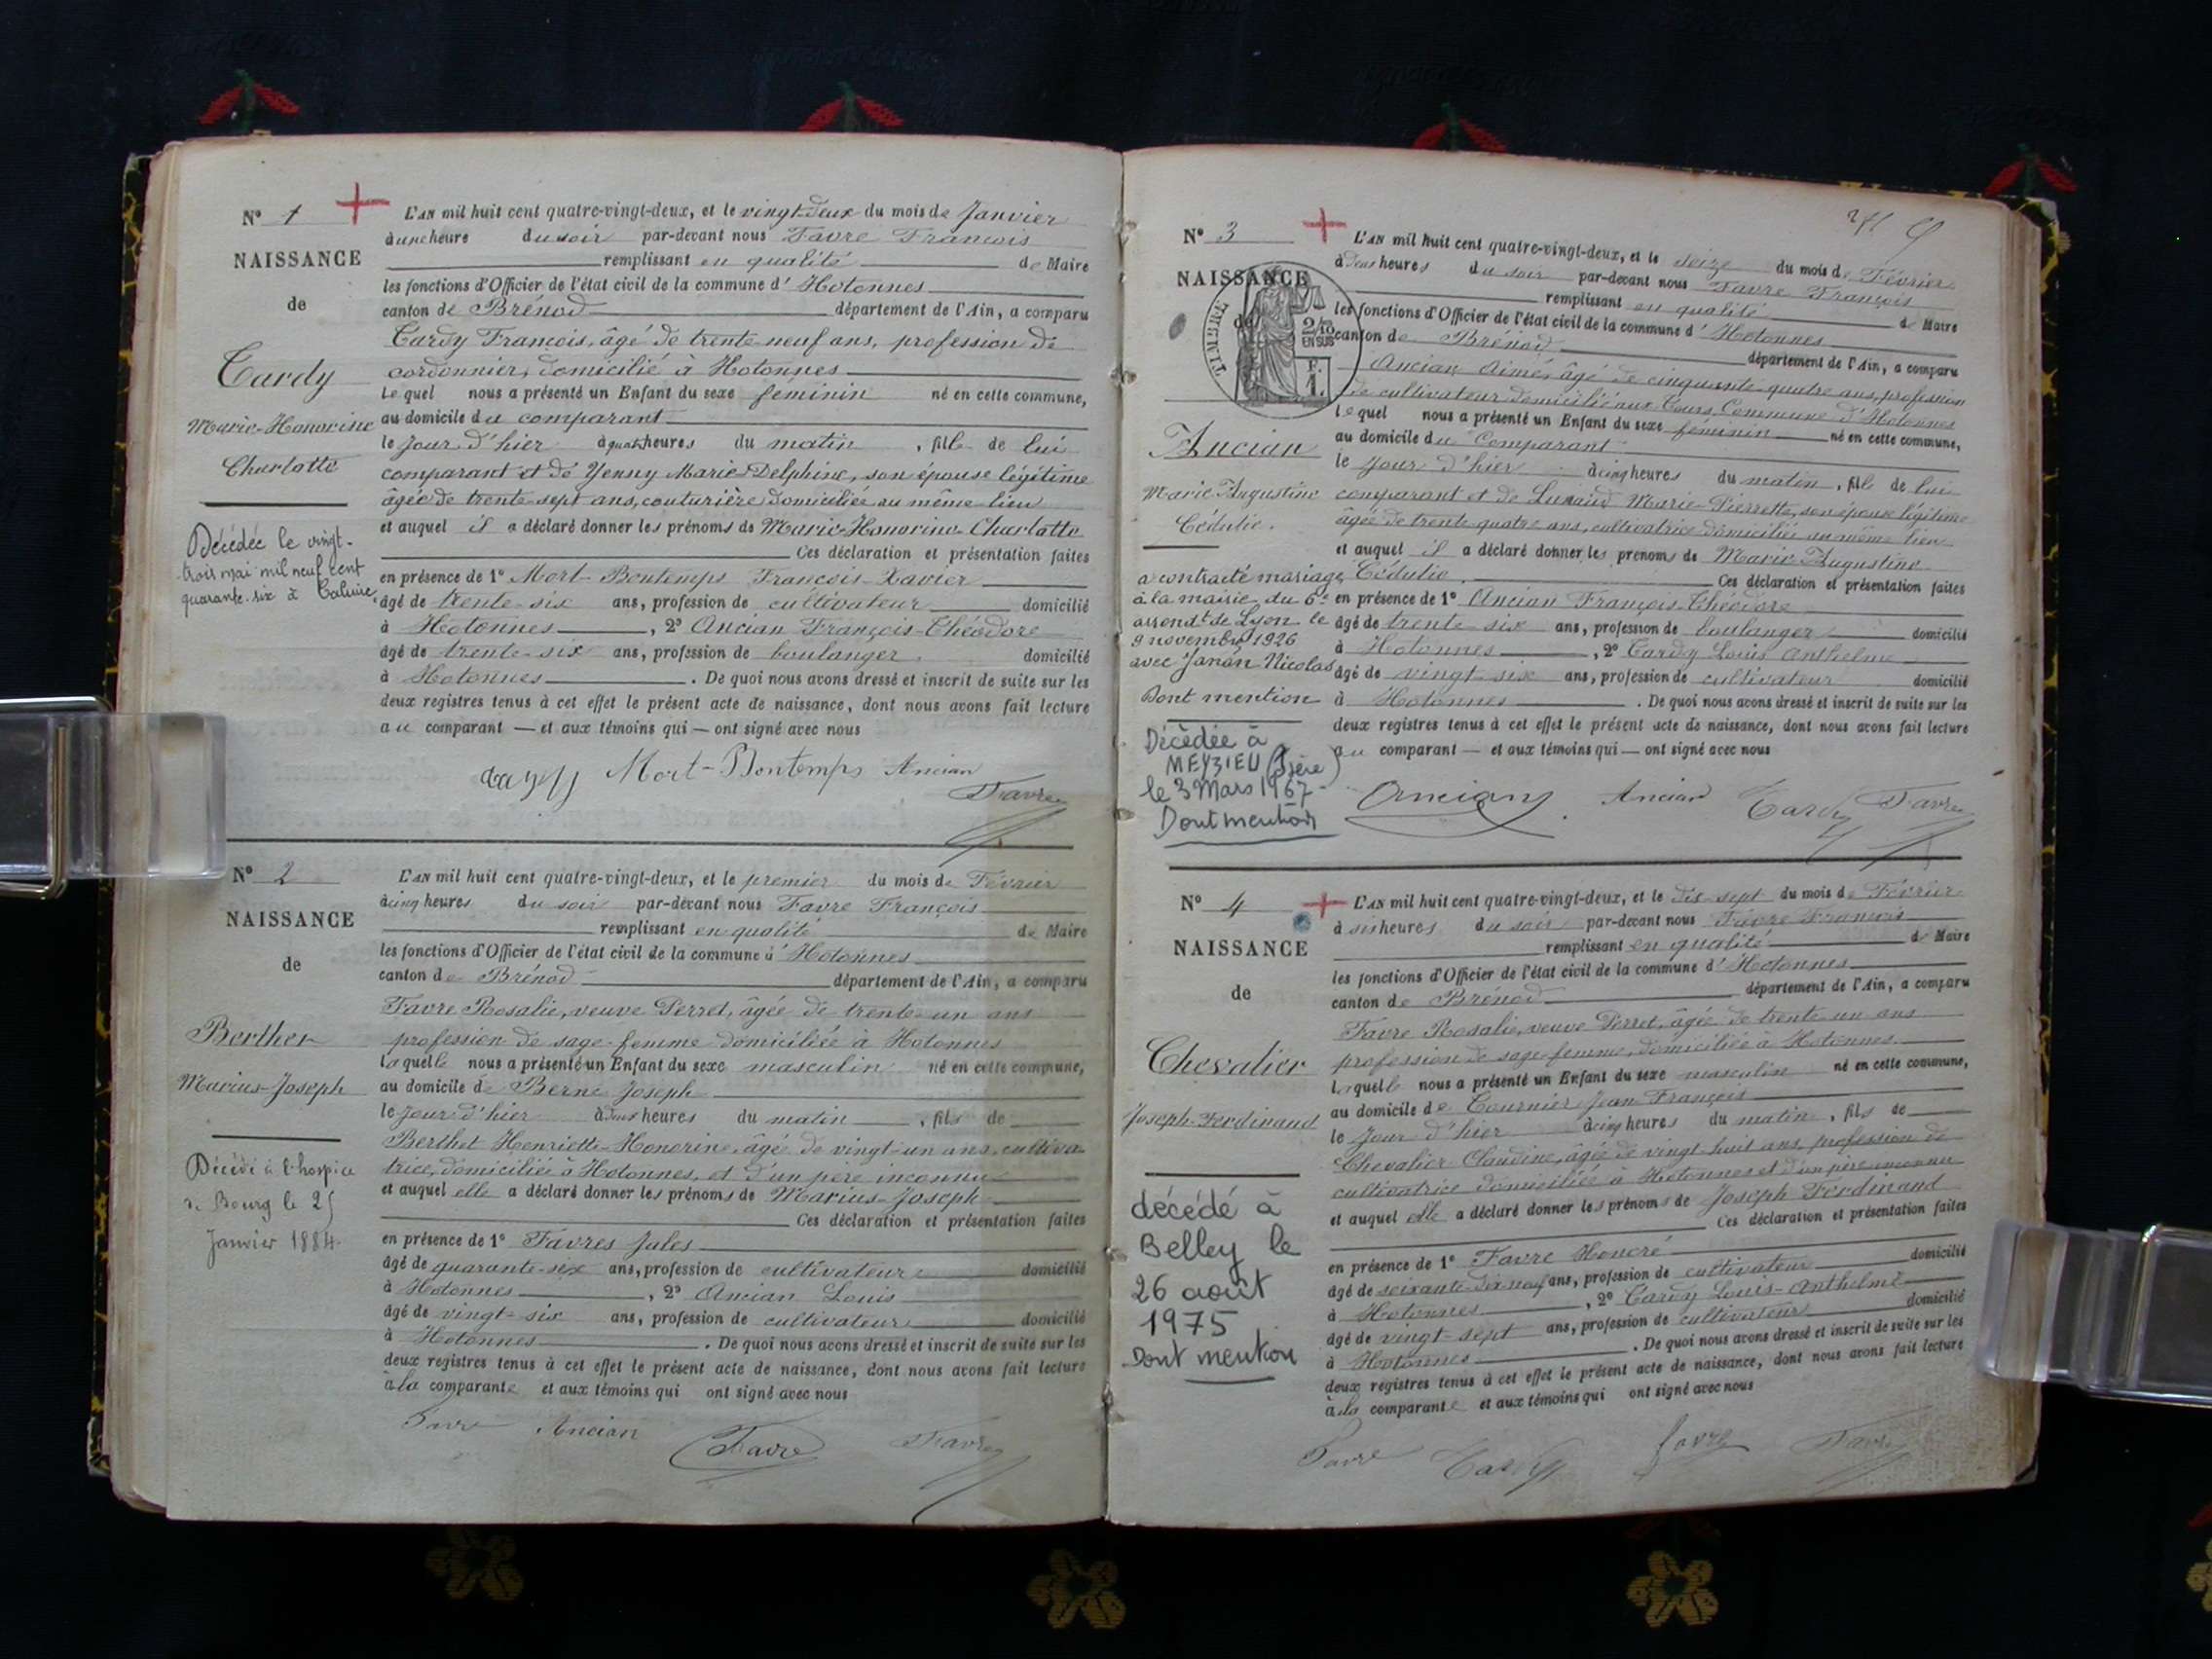 N° 1
NAISSANCE
de
Tardy
Marie-Honorine
Charlotte
Décédée le vingt-
trois mai mil neuf cent
quarante-six à Caluire
L'AN mil huit cent quatre-vingt-deux, et le vingt-deux du mois de Janvier
à une heure du soir par-devant nous Favre François
remplissant en qualité de Maire
les fonctions d'Officier de l'état civil de la commune d'Hotonnes
canton de Brénod département de l'Ain, a comparu
Tardy François, âgé de trente neuf ans, profession de
cordonnier, domicilié à Hotonnes
Lequel nous a présenté un Enfant du sexe féminin né en cette commune,
au domicile du comparant
le jour d'hier à quatre heures du matin, fille de lui
comparant et de Yenny Marie-Delphine, son épouse légitime
âgée de trente-sept ans, couturière domiciliée au même lieu
et auquel il a déclaré donner les prénoms de Marie-Honorine-Charlotte
Ces déclaration et présentation faites
en présence de 1° Mort-Bontemps François-Xavier
âgé de trente-six ans, profession de cultivateur domicilié
à Hotonnes, 2° Ancian François-Théodore
âgé de trente-six ans, profession de boulanger domicilié
à Hotonnes. De quoi nous avons dressé et inscrit de suite sur les
deux registres tenus à cet effet le présent acte de naissance, dont nous avons fait lecture
au comparant — et aux témoins qui — ont signé avec nous
Mort-Bontemps Ancian
Favre
N° 2
NAISSANCE
de
Berthet
Marius-Joseph
Décédé à l'hospice
de Bourg le 25
Janvier 1884.
L'AN mil huit cent quatre-vingt-deux, et le premier du mois de Février
à cinq heures du soir par-devant nous Favre François
remplissant en qualité de Maire
les fonctions d'Officier de l'état civil de la commune d'Hotonnes
canton de Brénod département de l'Ain, a comparu
Favre Rosalie, veuve Perret, âgée de trente-un ans
profession de sage-femme domiciliée à Hotonnes
Laquelle nous a présenté un Enfant du sexe masculin né en cette commune,
au domicile de Berne Joseph
le jour d'hier à deux heures du matin, fils de
Berthet Henriette-Honorine, âgé de vingt-un ans, cultiva-
trice, domiciliée à Hotonnes, et d'un père inconnu
et auquel elle a déclaré donner les prénoms de Marius-Joseph
Ces déclaration et présentation faites
en présence de 1° Favres Jules
âgé de quarante-six ans, profession de cultivateur domicilié
à Hotonnes, 2° Ancian Louis
âgé de vingt-six ans, profession de cultivateur domicilié
à Hotonnes. De quoi nous avons dressé et inscrit de suite sur les
deux registres tenus à cet effet le présent acte de naissance, dont nous avons fait lecture
à la comparante et aux témoins qui ont signé avec nous
Favre Ancian Favre Favre
N° 3
NAISSANCE
de
TIMBRE
2/10
EN SUS
F.
1.
Ancian
Marie Augustine
Cédulie.
a contracté mariage
à la mairie du 6e
arrondt de Lyon le
9 novembre 1926
avec Janan Nicolas
Dont mention
Décédée à
MEYZIEU (Isère)
le 3 Mars 1967-
Dont mention
L'AN mil huit cent quatre-vingt-deux, et le seize du mois de Février
à deux heures du soir par-devant nous Favre François
remplissant en qualité de Maire
les fonctions d'Officier de l'état civil de la commune d'Hotonnes
canton de Brénod département de l'Ain, a comparu
Ancian Aimé, âgé de cinquante-quatre ans, profession
de cultivateur domicilié aux Cours, Commune d'Hotonnes
Lequel nous a présenté un Enfant du sexe féminin né en cette commune,
au domicile du Comparant
le jour d'hier à cinq heures du matin, fille de lui
comparant et de Marie-Pierrette, son épouse légitime
âgée de trente-quatre ans, cultivatrice domiciliée au même lieu
et auquel il a déclaré donner les prénoms de Marie Augustine
Cédulie. Ces déclaration et présentation faites
en présence de 1° Ancian François-Théodore
âgé de trente-six ans, profession de boulanger domicilié
à Hotonnes, 2° Tardy Louis Anthelme
âgé de vingt-six ans, profession de cultivateur domicilié
à Hotonnes. De quoi nous avons dressé et inscrit de suite sur les
deux registres tenus à cet effet le présent acte de naissance, dont nous avons fait lecture
au comparant — et aux témoins qui — ont signé avec nous
Ancian Ancian Tardy Favre
N° 4
NAISSANCE
de
Chevalier
Joseph-Ferdinand
décédé à
Belley le
26 août
1975
Dont mention
L'AN mil huit cent quatre-vingt-deux, et le dix-sept du mois de Février
à six heures du soir par-devant nous Favre François
remplissant en qualité de Maire
les fonctions d'Officier de l'état civil de la commune d'Hotonnes
canton de Brénod département de l'Ain, a comparu
Favre Rosalie, veuve Perret, âgée de trente un ans
profession de sage-femme, domiciliée à Hotonnes
Laquelle nous a présenté un Enfant du sexe masculin né en cette commune,
au domicile de Tournier Jean François
le jour d'hier à cinq heures du matin, fils de
Chevalier Claudine, âgée de vingt-huit ans, profession de
cultivatrice domiciliée à Hotonnes et d'un père inconnu
et auquel elle a déclaré donner les prénoms de Joseph Ferdinand
Ces déclaration et présentation faites
en présence de 1° Favre Honoré
âgé de soixante-dix-neuf ans, profession de cultivateur domicilié
à Hotonnes, 2° Tardy Louis-Anthelme
âgé de vingt-sept ans, profession de cultivateur domicilié
à Hotonnes. De quoi nous avons dressé et inscrit de suite sur les
deux registres tenus à cet effet le présent acte de naissance, dont nous avons fait lecture
à la comparante et aux témoins qui ont signé avec nous
Favre Tardy Favre Favre